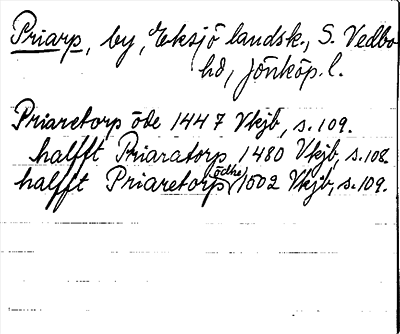 Priarp, by, Eksjö landsk., S. Vedbo
hd, Jönköp. l.
Priaretorp öde 1447 Vkjb, s. 109.
halfft Priaratorp 1480 Vkjb, s. 108.
halfft Priaretorp ödhe 1502 Vkjb, s. 109.